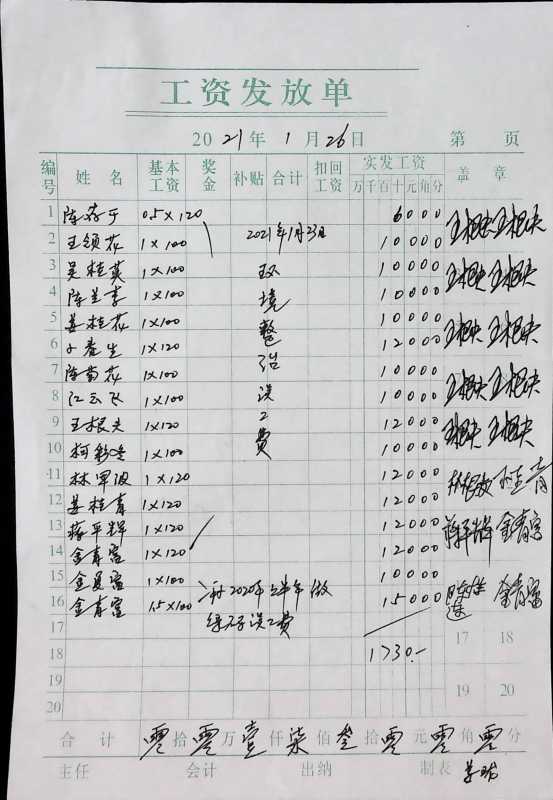 工资发放单
2021年1月26日 第 页
编号 姓名 基本工资 奖金 补贴 合计 扣回工资 实发工资 万千百十元角分 盖章
1 陈 于 0.5×120 6000
2 王领花 1×100 2021年1月23日 10000 王根夫 王根夫
3 吴桂英 1×100 环 10000
4 陈兰 1×100 境 10000 王根夫 王根夫
5 姜桂花 1×100 整 10000
6 春生 1×120 治 12000 王根夫 王根夫
7 陈菊花 1×100 10000
8 江云飞 1×100 误 10000 王根夫 王根夫
9 王根夫 1×120 工 12000
10 柯彩冬 1×100 费 10000 王根夫 王根夫
11 林罕波 1×120 12000
12 姜桂青 1×120 12000
13 蒋平辉 1×120 12000 蒋平辉 金青富
14 金青富 1×120 12000
15 金夏富 1×100 10000
16 金青富 1.5×100 2020年上半年做 15000 金青富
17 误工费 17 18
18 1730.-
19 19 20
20
合计 零拾零万壹仟柒佰叁拾零元零角零分
主任 会计 出纳 制表